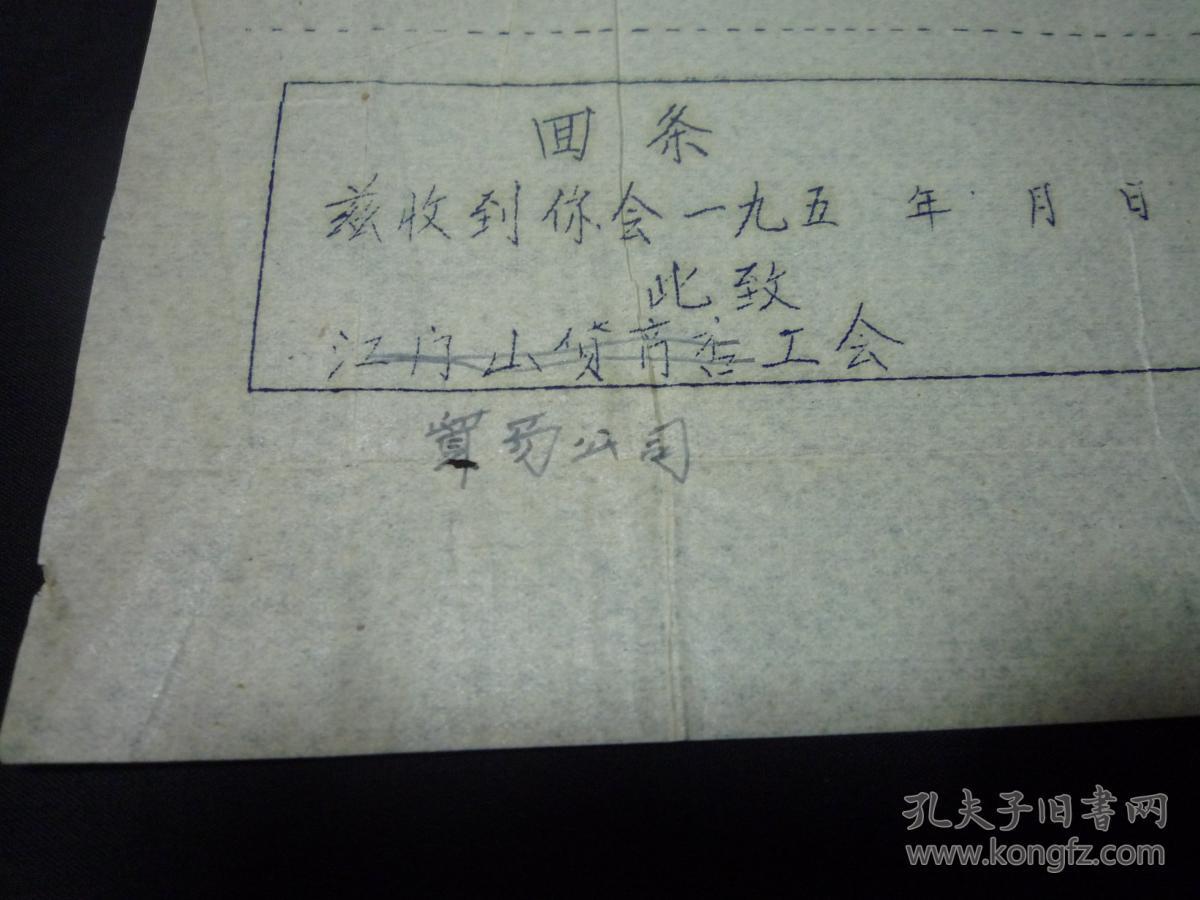 回条
兹收到你会一九五 年 月 日
此致
江门山货商店工会
貿易公司
孔夫子旧書网
www.kongfz.com